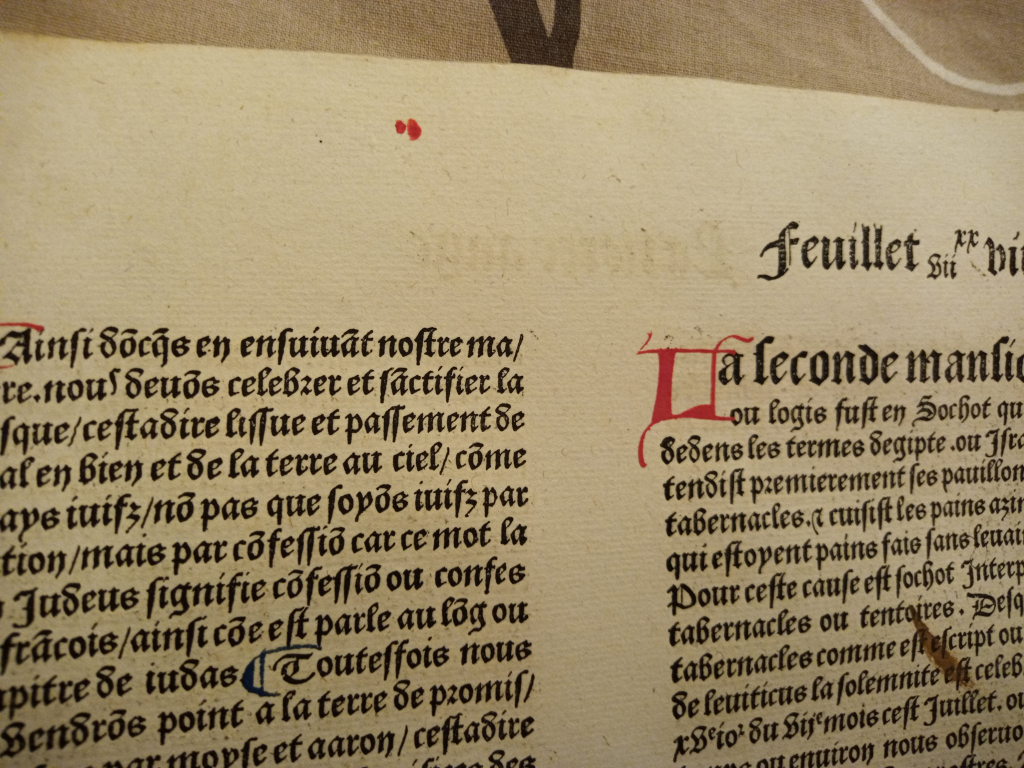 Feuillet vii xx
Ainsi dōcq̄s en ensuiuāt nostre ma/
re. nous deuōs celebrer et sāctifier la
sque/cestadire lissue et passement de
al en bien et de la terre au ciel/ cōme
ays iuifz/nō pas que soyōs iuifz par
tion/mais par cōfessiō car ce mot la
Judeus signifie cōfessiō ou confes
frācois/ainsi cōe est parle au lōg ou
pitre de iudas. Toutesfois nous
vendrōs point a la terre de promis/
par moyse et aaron/ cestadire
des
La seconde mansio
ou logis fust en Sochot qu
dedens les termes degipte. ou Isra
tendist premierement ses pauillon
tabernacles. ⁊ cuisist les pains azim
qui estoyent pains fais sans leuain
Pour ceste cause est sochot Interp
tabernacles ou tentoires. Desq
tabernacles comme est escript ou
de leuiticus la solemnite est celeb
xve io² du viie mois cest Juillet. ou
ou enuiron nous obseruo